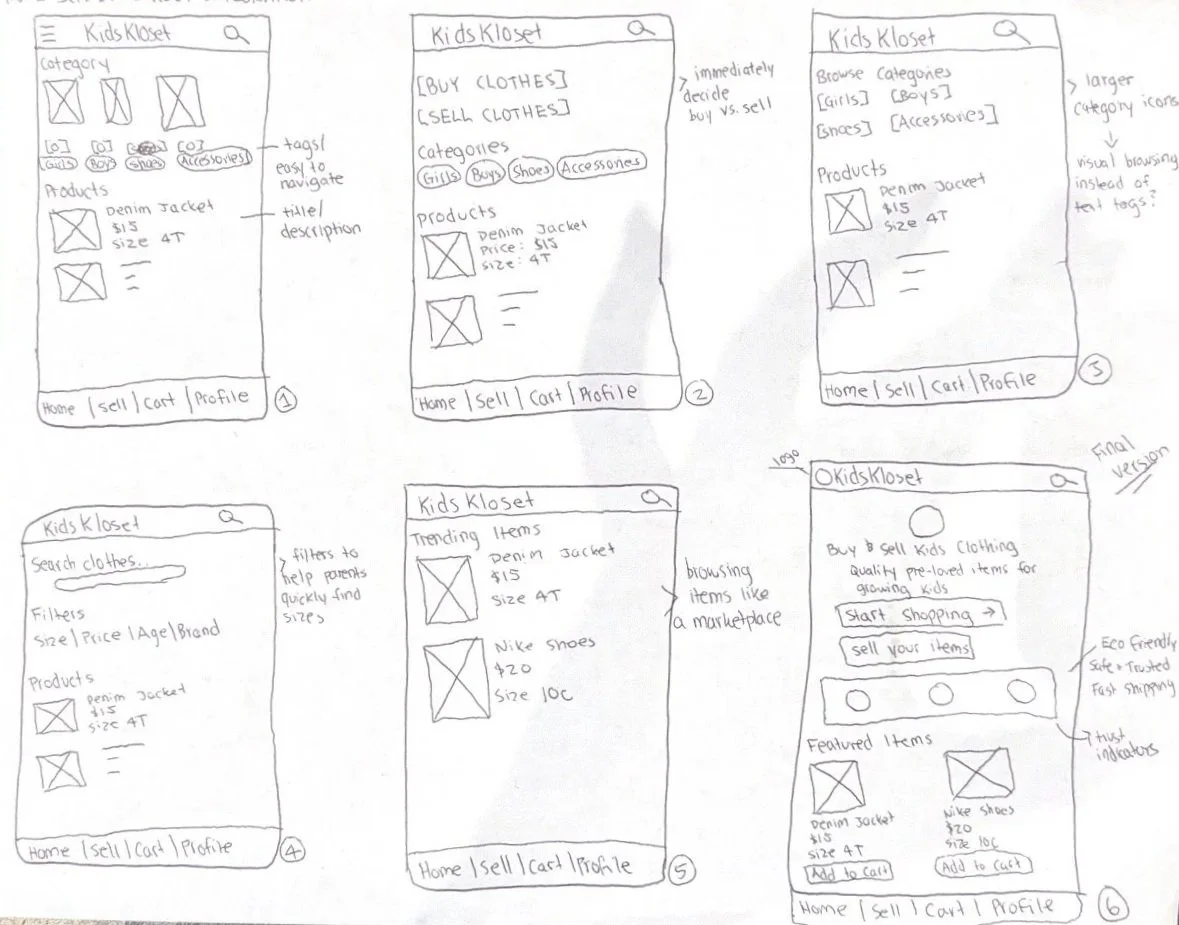 KidsKloset
Category
[O] [O] [O]
Girls Boys Shoes Accessories
Products
Denim Jacket
$15
Size 4T
Home | Sell | Cart | Profile
1
tags/
easy to
navigate
title/
description
Kids Kloset
[BUY CLOTHES]
[SELL CLOTHES]
Categories
Girls Boys Shoes Accessories
Products
Denim Jacket
Price: $15
Size: 4T
Home | Sell | Cart | Profile
2
> immediately
decide
buy vs. sell
Kids Kloset
Browse Categories
[Girls] [Boys]
[Shoes] [Accessories]
Products
Denim Jacket
$15
Size 4T
Home | Sell | Cart | Profile
3
> larger
category icons
↓
visual browsing
instead of
text tags?
Kids Kloset
Search clothes...
Filters
Size | Price | Age | Brand
Products
Denim Jacket
$15
Size 4T
Home | Sell | Cart | Profile
4
> filters to
help parents
quickly find
sizes
Kids Kloset
Trending Items
Denim Jacket
$15
Size 4T
Nike Shoes
$20
Size 10C
Home | Sell | Cart | Profile
5
browsing
items like
a marketplace
Final
version
logo
KidsKloset
Buy & Sell Kids Clothing
Quality pre-loved items for
growing kids
Start Shopping →
Sell your items
Eco Friendly
Safe + Trusted
Fast Shipping
trust
indicators
Featured Items
Denim Jacket
$15
Size 4T
Add to Cart
Nike Shoes
$20
Size 10C
Add to Cart
Home | Sell | Cart | Profile
6